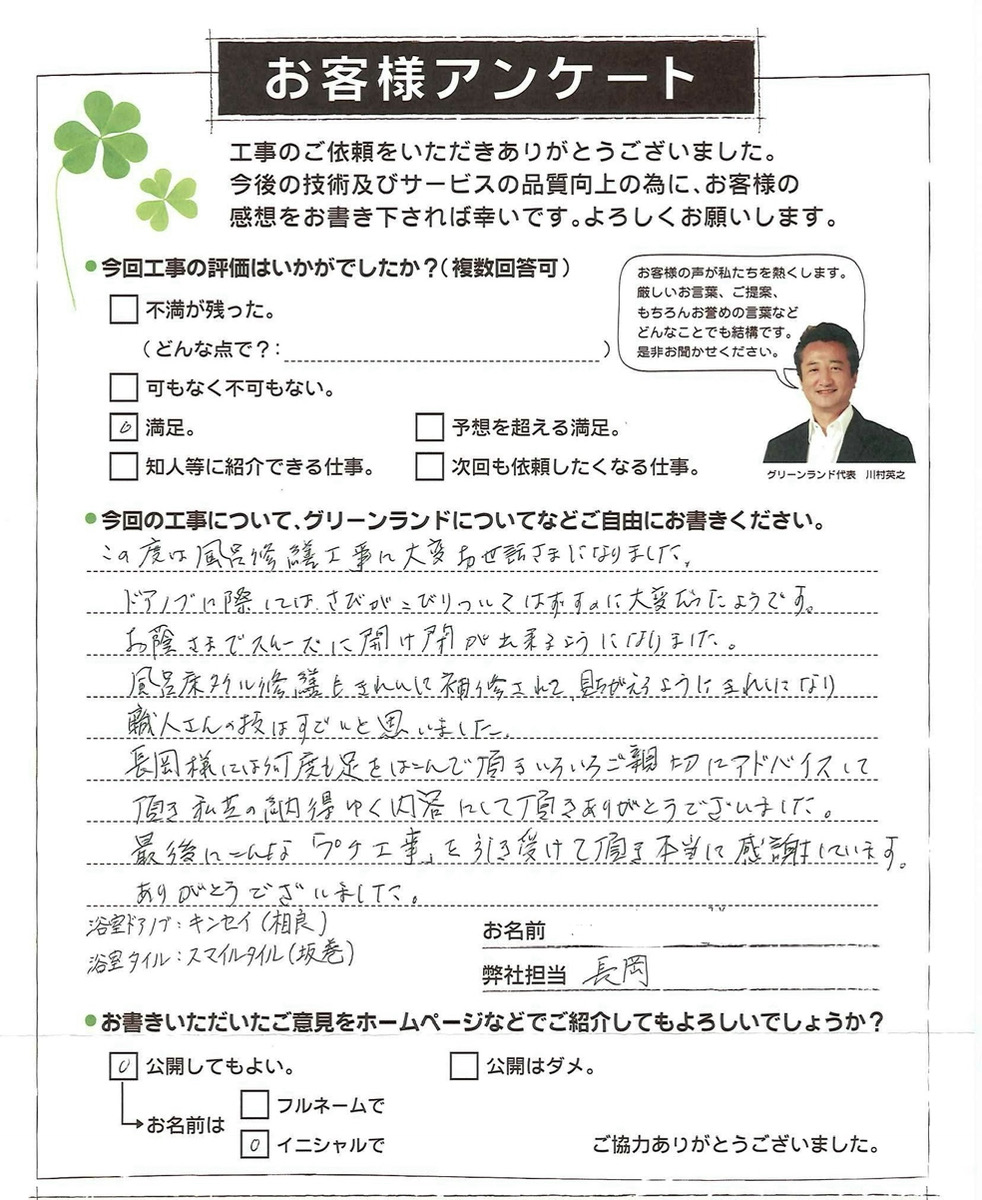 お客様アンケート
工事のご依頼をいただきありがとうございました。
今後の技術及びサービスの品質向上の為に、お客様の
感想をお書き下されば幸いです。よろしくお願いします。
今回工事の評価はいかがでしたか？（複数回答可）
不満が残った。
（どんな点で？：）
可もなく不可もない。
満足。
予想を超える満足。
知人等に紹介できる仕事。
次回も依頼したくなる仕事。
お客様の声が私たちを熱くします。
厳しいお言葉、ご提案、
もちろんお誉めの言葉など
どんなことでも結構です。
是非お聞かせください。
グリーンランド代表　川村英之
今回の工事について、グリーンランドについてなどご自由にお書きください。
この度は風呂修繕工事に大変お世話さまになりました。
ドアノブに際しては、さびがこびりついてはずすのに大変だったようです。
お陰さまでスムーズに開け閉が出来るようになりました。
風呂床タイル修繕もきれいに補修されて、見ちがえるようにきれいになり
職人さんの技はすごいと思いました。
長岡様には何度も足をはこんで頂きいろいろご親切にアドバイスして
頂き私共の納得ゆく内容にして頂きありがとうございました。
最後にこんな「プチ工事」を引き受けて頂き本当に感謝しています。
ありがとうございました。
浴室ドアノブ：キンセイ（相良）
浴室タイル：スマイルタイル（坂巻）
お名前
弊社担当 長岡
お書きいただいたご意見をホームページなどでご紹介してもよろしいでしょうか？
公開してもよい。
公開はダメ。
お名前は
フルネームで
イニシャルで
ご協力ありがとうございました。